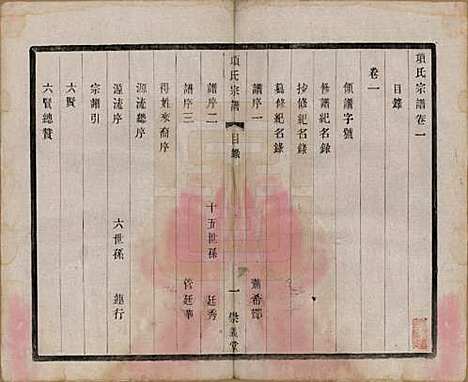 項氏宗譜卷一
目錄
卷一
領譜字號
修譜紀名錄
按修紀名錄
纂修紀名錄
譜序一 蕭希鄮
項氏宗譜 目錄 一 崇義堂
譜序二 十五世孫 廷秀
譜序三 管廷華
得姓來裔序
源流序
源流序 六世孫 鍾行
宗譜引
六賢
六賢總贊